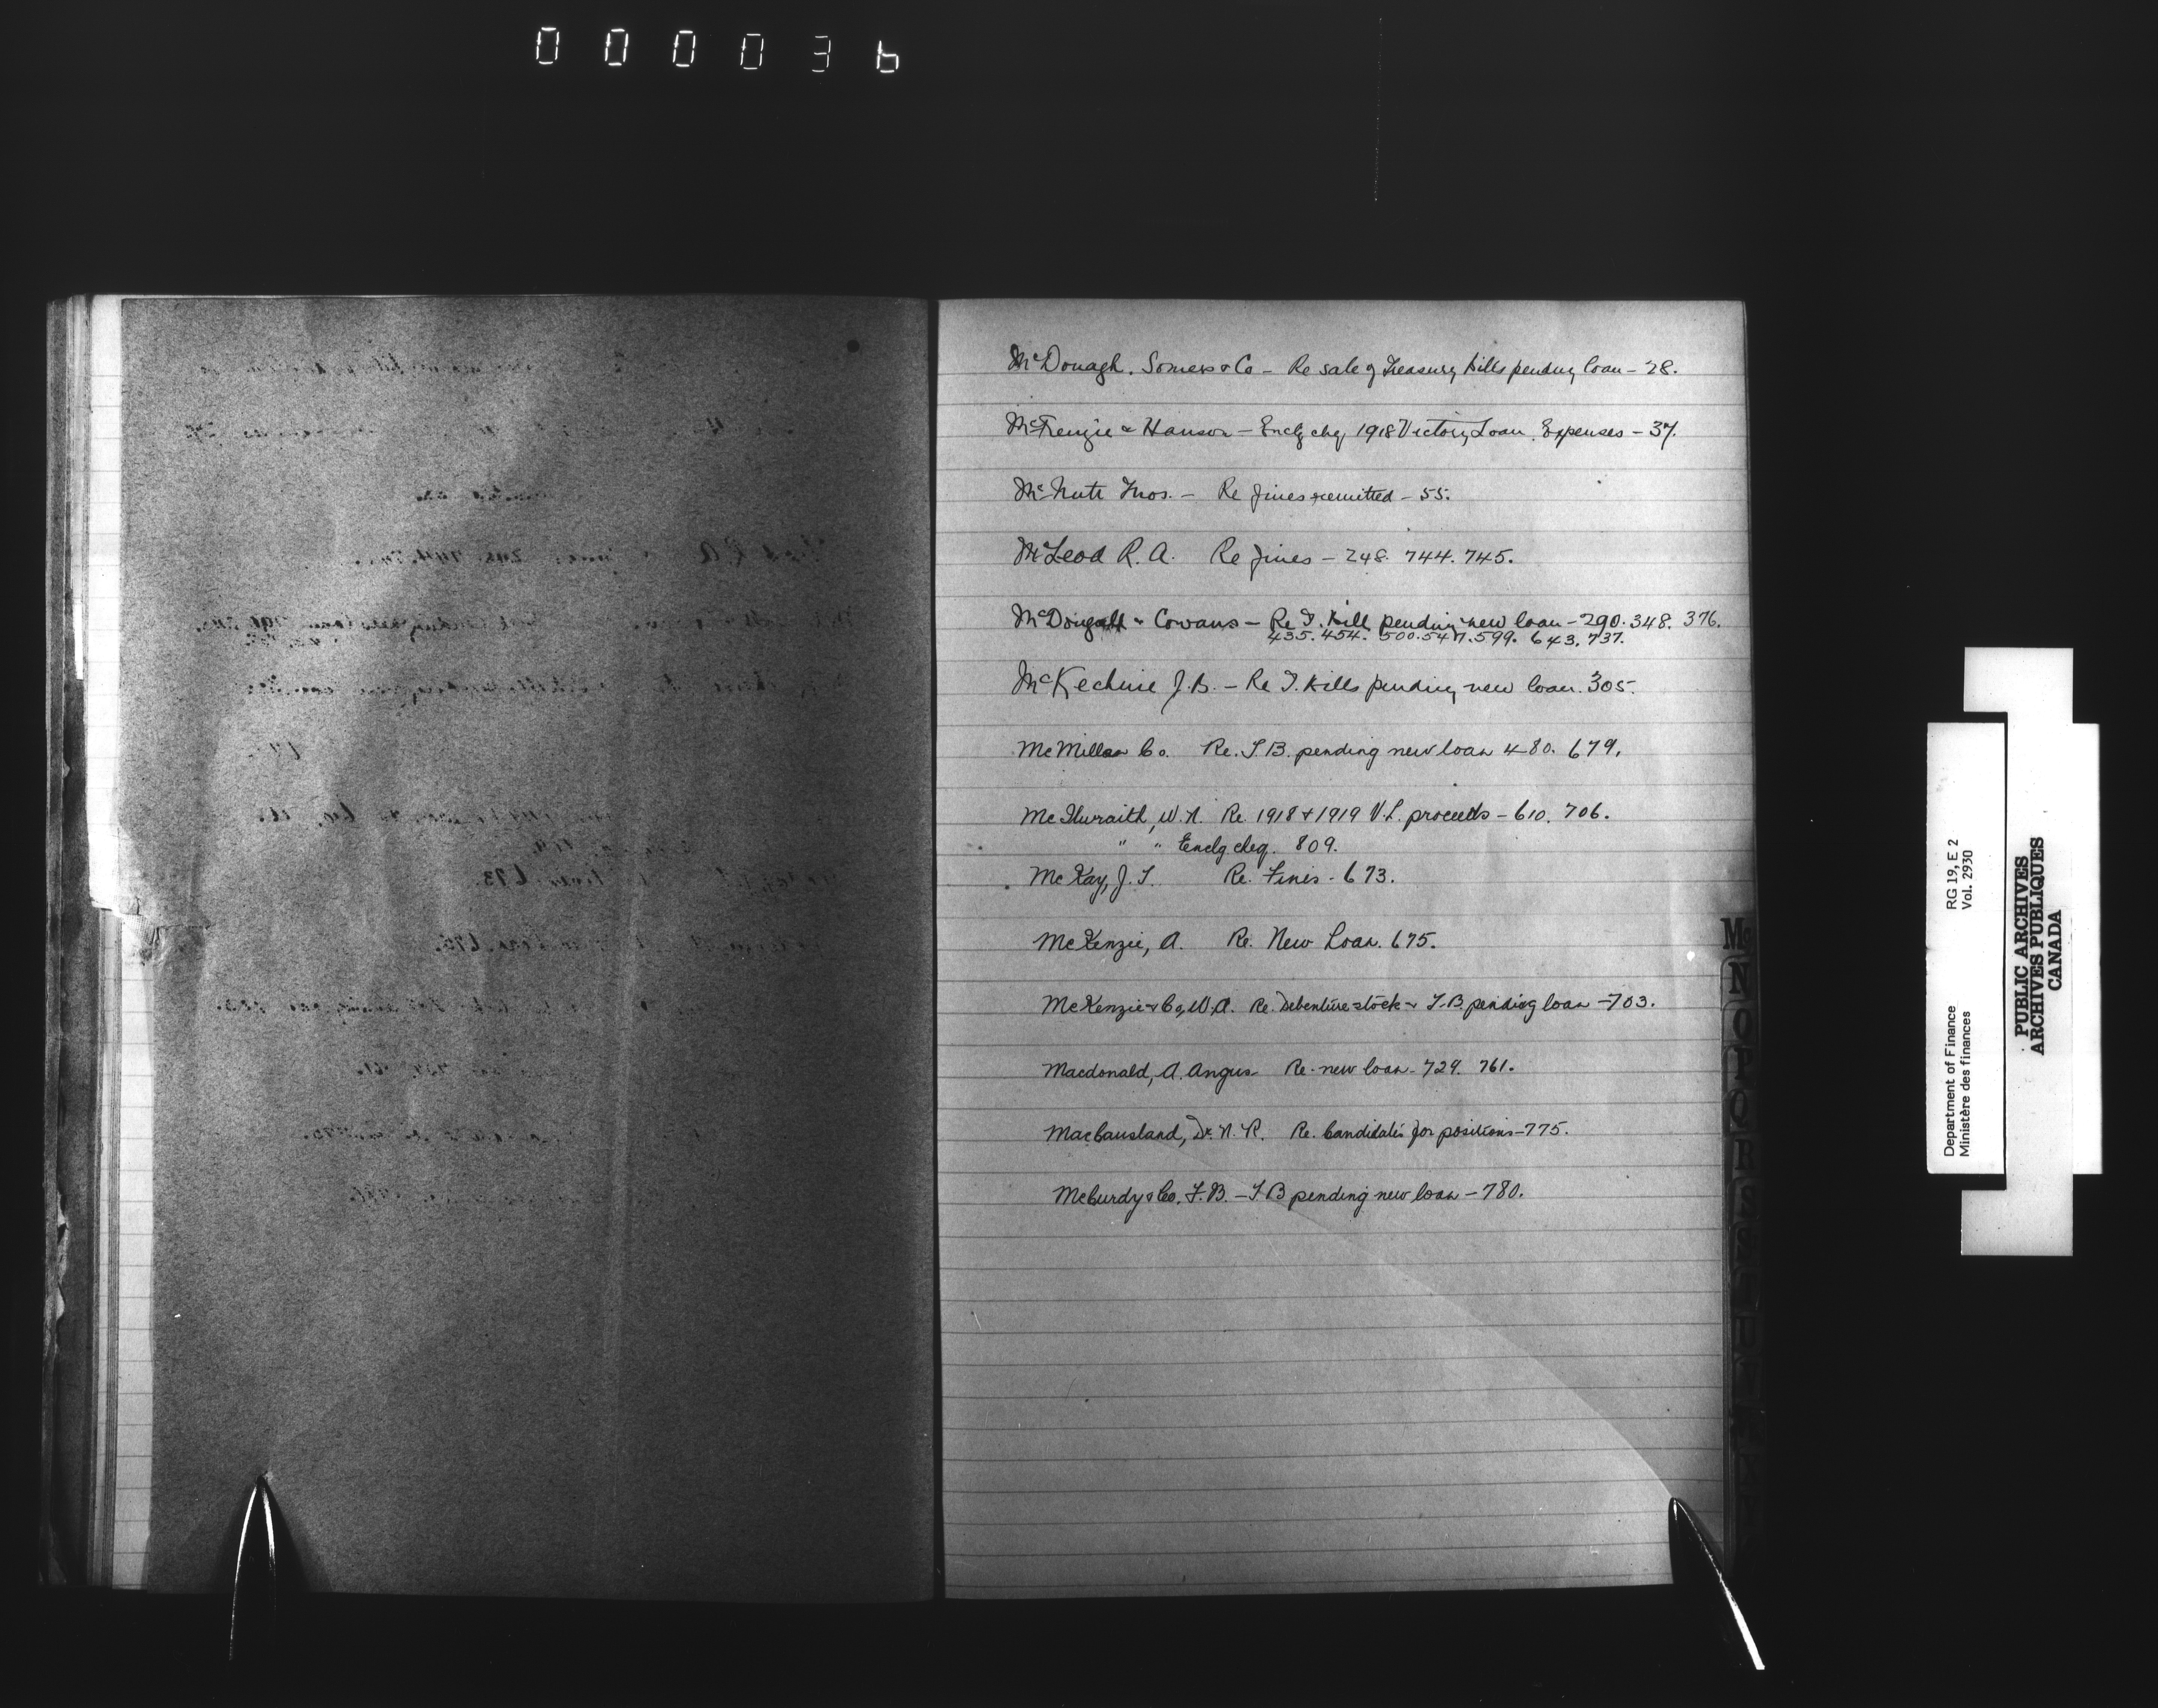 00003b
McDonagh. Somers & Co - Re sale of Treasury bills pending loan - 28.
McKenzie & Hanson - Enclg chq 1918 Victory Loan Expenses - 37.
McNutt Thos. - Re fines remitted - 55.
McLeod R. A. Re fines - 248. 744. 745.
McDougall & Cowans - Re T. bill pending new loan - 290. 348. 376.
435. 454. 500. 547. 599. 643. 737.
McKechnie J.B. - Re T. bills pending new loan. 305.
McMillan Co. Re. T.B. pending new loan 480. 679.
McIlwraith, W.N. Re. 1918 & 1919 V.L. proceeds - 610. 706.
" " Enclg cheq. 809.
McKay, J. T. Re. Fines - 673.
McKenzie, A. Re. New Loan. 675.
McKenzie & Co, W.A. Re. Debenture stock & T.B. pending loan - 703.
Macdonald, A. Angus Re. new loan - 729. 761.
MacCausland, Dr. N. R. Re. Candidates for positions - 775.
McCurdy & Co. F.B. - T B pending new loan - 780.
Mc
N
O
P
Q
R
S
T
U
Department of Finance RG 19, E 2
Ministère des finances Vol. 2930
PUBLIC ARCHIVES
ARCHIVES PUBLIQUES
CANADA